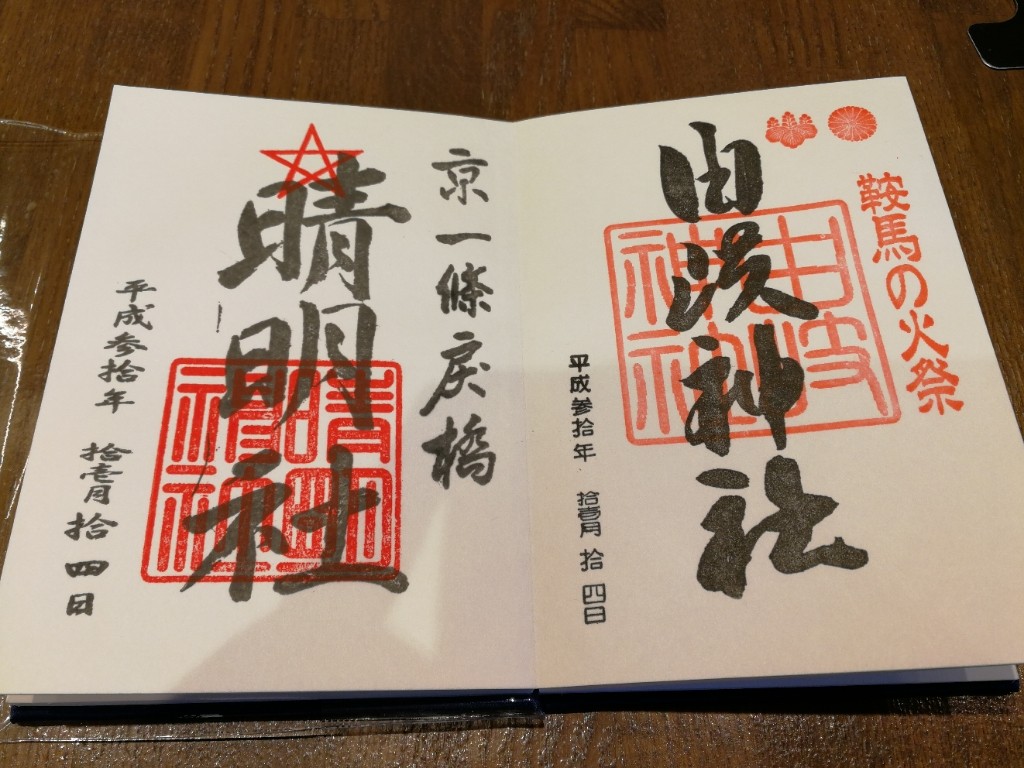 鞍馬の火祭
由岐神社
由岐神社
平成参拾年 拾壱月 拾四日
京一條戻橋
晴明社
晴明神社
平成参拾年 拾壱月 拾四日